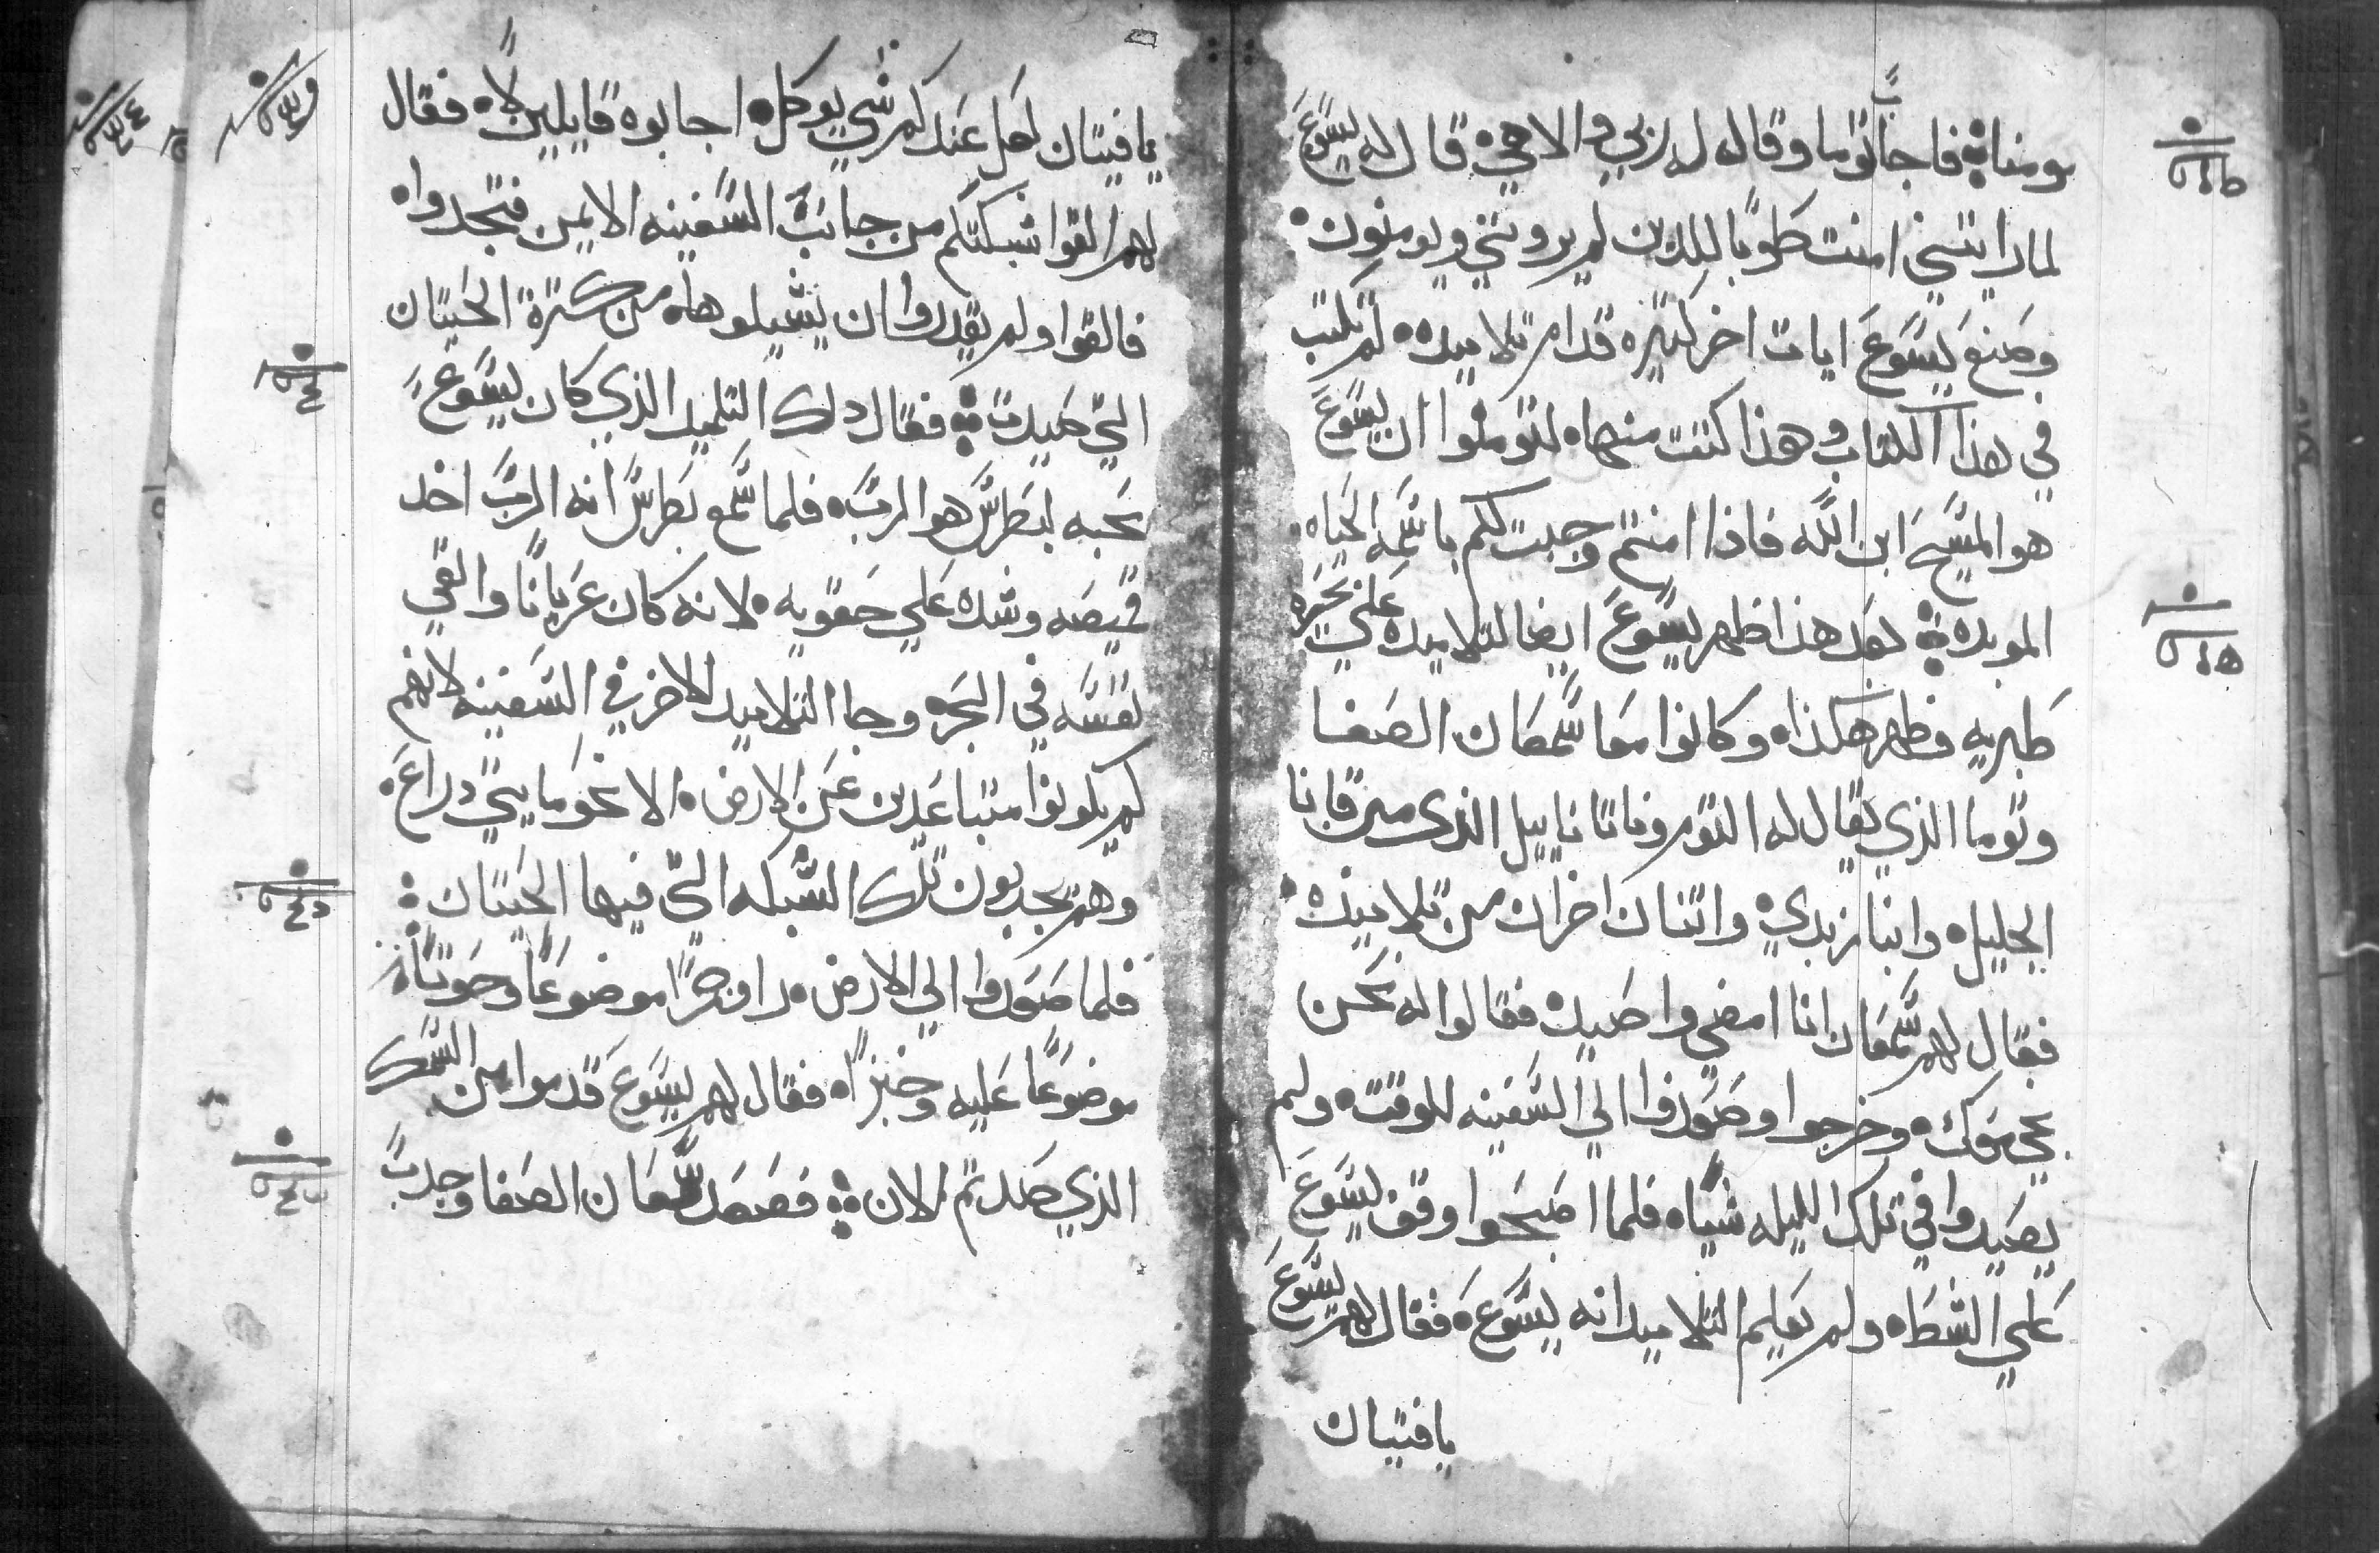 مومناً فاجاب توما وقال له ربي والاهي قال له يسوع
لما رايتني امنت طوبا للدين لم يروني ويومنون
وصنع يسوع ايات اخر كتيره قدام تلاميده لم تكتب
في هذا الكتاب وهذا كتبت منها لتومنوا ان يسوع
هو المسيح ابن الله فاذا امنتم وجبت لكم باسمه الحياه
الموبده بعد هذا ظهر يسوع ايضا لتلاميده علي بحيره
طبريه فظهر هكذا وكانوا معا سمعان الصفا
وتوما الذي يقال له التوم وناتانا ييل الذى من قانا
الجليل وابنا زبدي واتنان اخران من تلاميذه
فقال لهم سمعان انا امضي واصيد فقالوا له نحن
نجي معك وخرجوا وصعدوا الي السفينه للوقت ولم
يصيدوا في تلك الليله شيا فلما اصبحوا وقف يسوع
علي الشط ولم يعلم التلاميد انه يسوع فقال لهم يسوع
يافتيان
يافتيان هل عندكم شي يوكل اجابوه قايلين لا فقال
لهم القوا شبكتكم من جانب السفينه الايمن فتجدوا
فالقوا ولم يقدروا ان يشيلوها من كترة الحيتان
التي صيدت فقال دلك التلميد الذي كان يسوع
يحبه لبطرس هو الرب فلما سمع بطرس انه الرب اخد
قميصه وشده علي حقويه لانه كان عرياناً والقي
نفسه في البحر وجا التلاميد الاخر في السفينه لانهم
لم يكونوا متباعدين عن الارض الا نحو مايتي دراع
وهم يجدبون تلك الشبكه التي فيها الحيتان
فلما صعدوا الي الارض راو جمراً موضوعاً وحوتاً
موضوعاً عليه وخبزاً فقال لهم يسوع قدموا من السمك
الذي صدتم الان فصعد سمعان الصفا وجدب